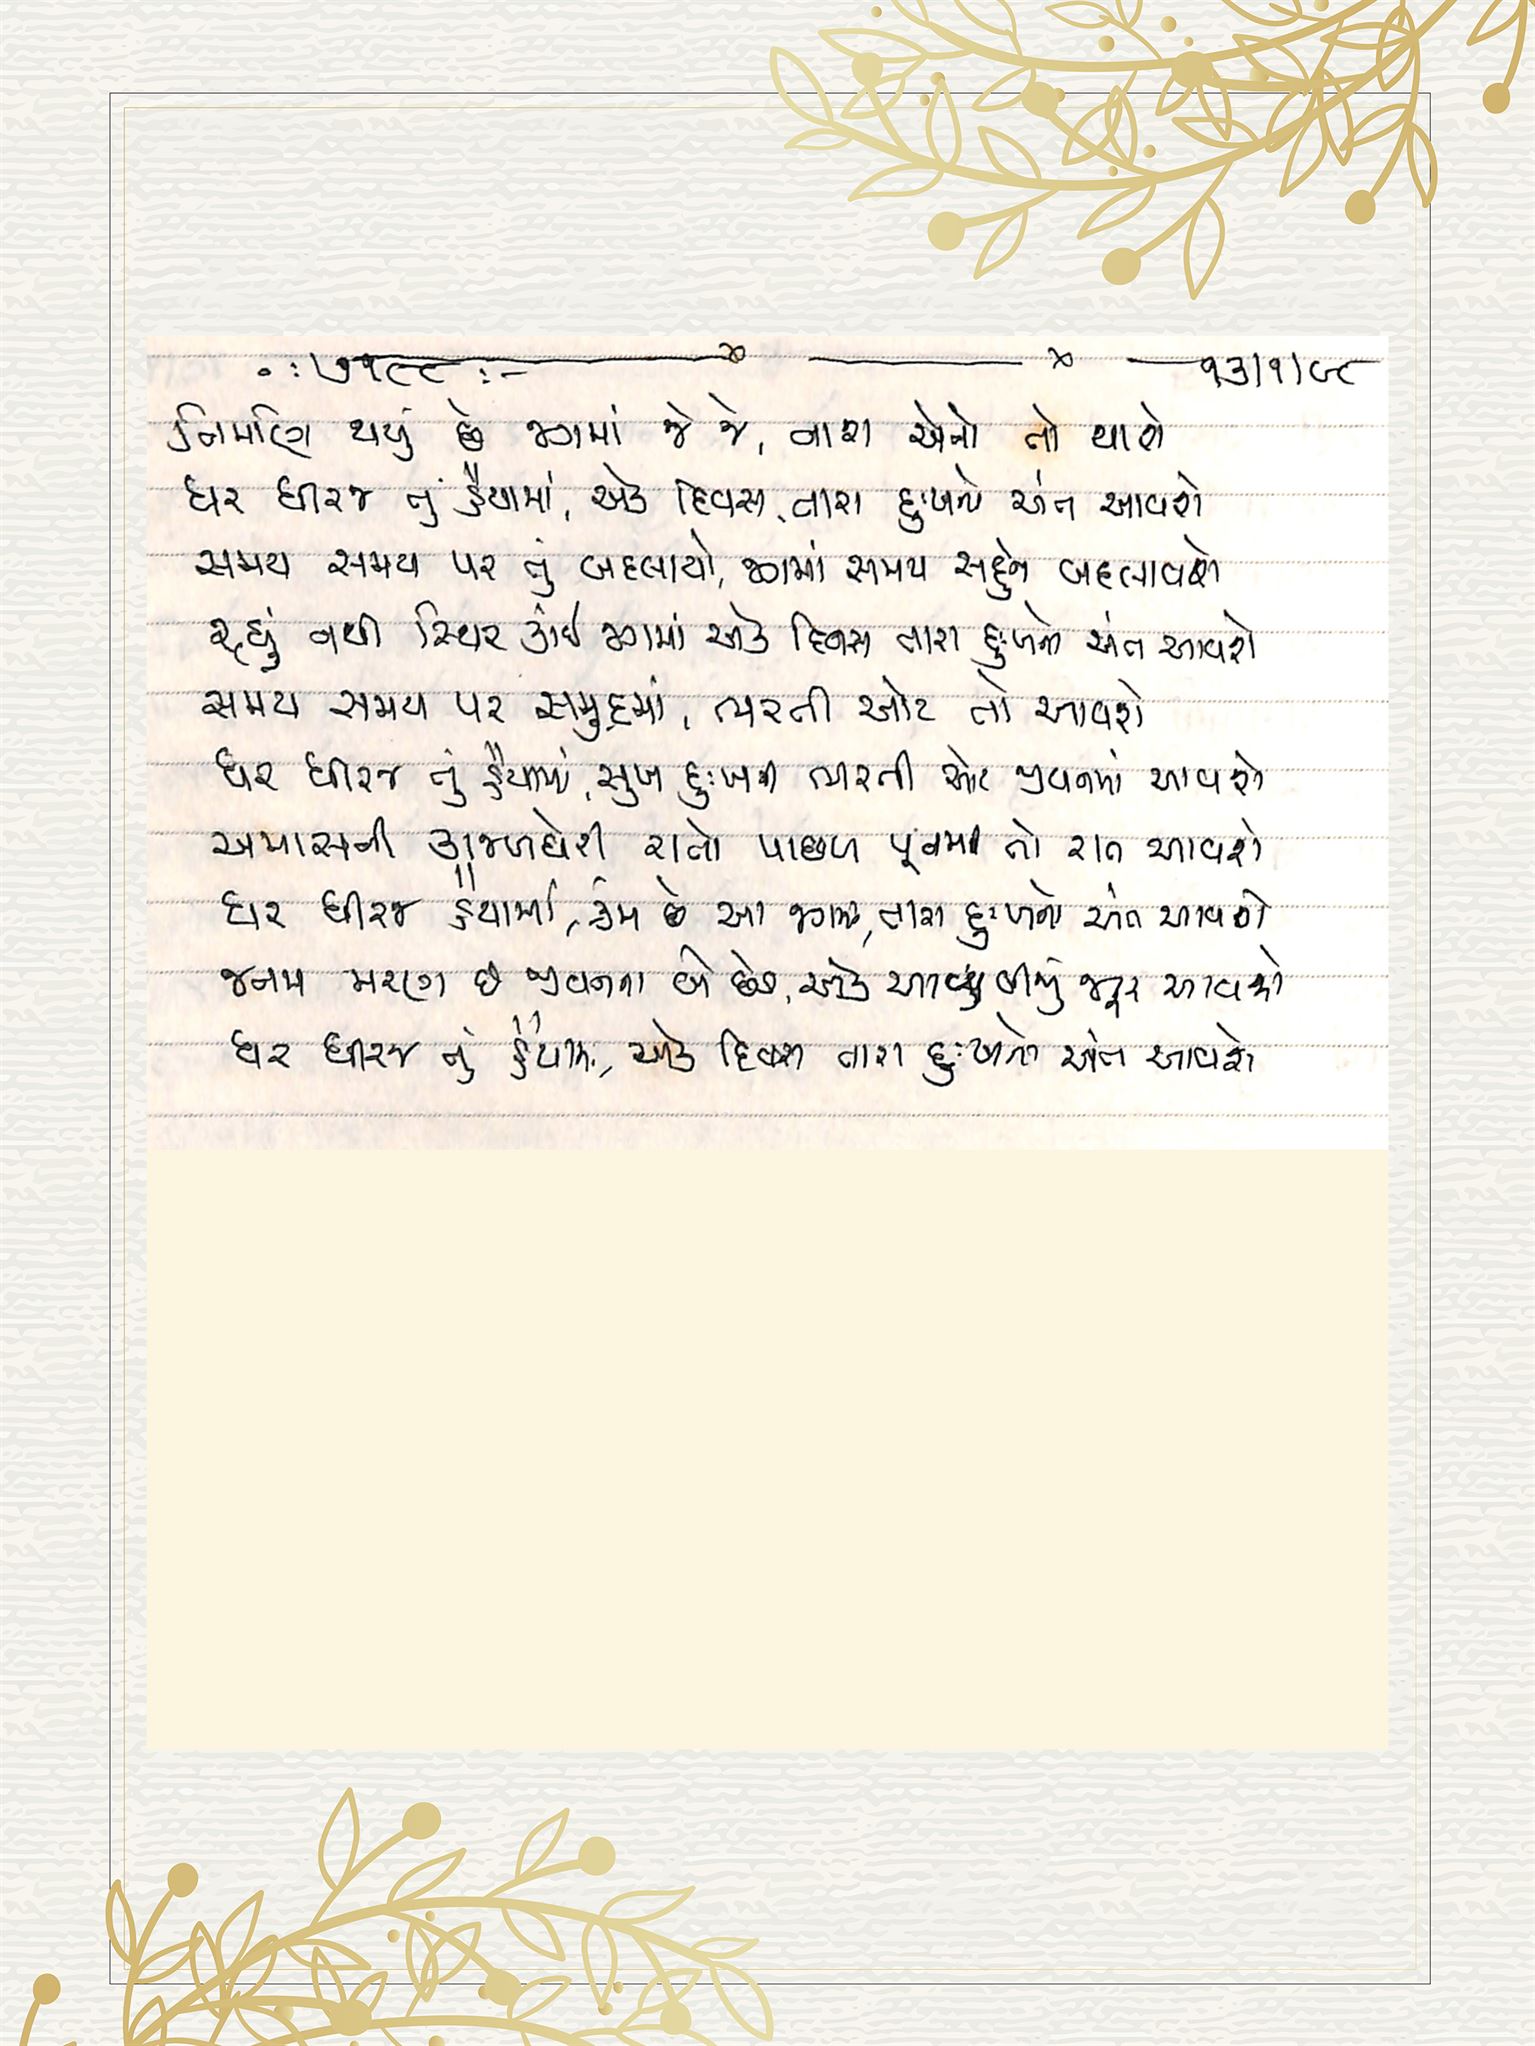 ૦ : ૭૧૮૮ : - ૧૩/૧/૯૮
નિર્માણ થયું છે જગમાં જે જે, નાશ એનો તો થાશે
ધર ધીરજ તું હૈયામાં, એક દિવસ તારા દુઃખનો અંત આવશે
સમય સમય પર તું બદલાયો, જગમાં સમય સહુને બદલાવશે
રહ્યું નથી સ્થિર કાંઈ જગમાં એક દિવસ તારા દુઃખનો અંત આવશે
સમય સમય પર સમુદ્રમાં, ભરતી ઓટ તો આવશે
ધર ધીરજ તું હૈયામાં, સુખ દુઃખની ભરતી ઓટ જીવનમાં આવશે
અમાસની કાજળઘેરી રાતો પાછળ પૂનમની તો રાત આવશે
ધર ધીરજ હૈયામાં, ક્રમ છે આ જગમાં, તારા દુઃખનો અંત આવશે
જનમ મરણ છે જીવનના બે છેડા, એક આવ્યું બીજું જરૂર આવશે
ધર ધીરજ તું હૈયામાં, એક દિવસ તારા દુઃખનો અંત આવશે